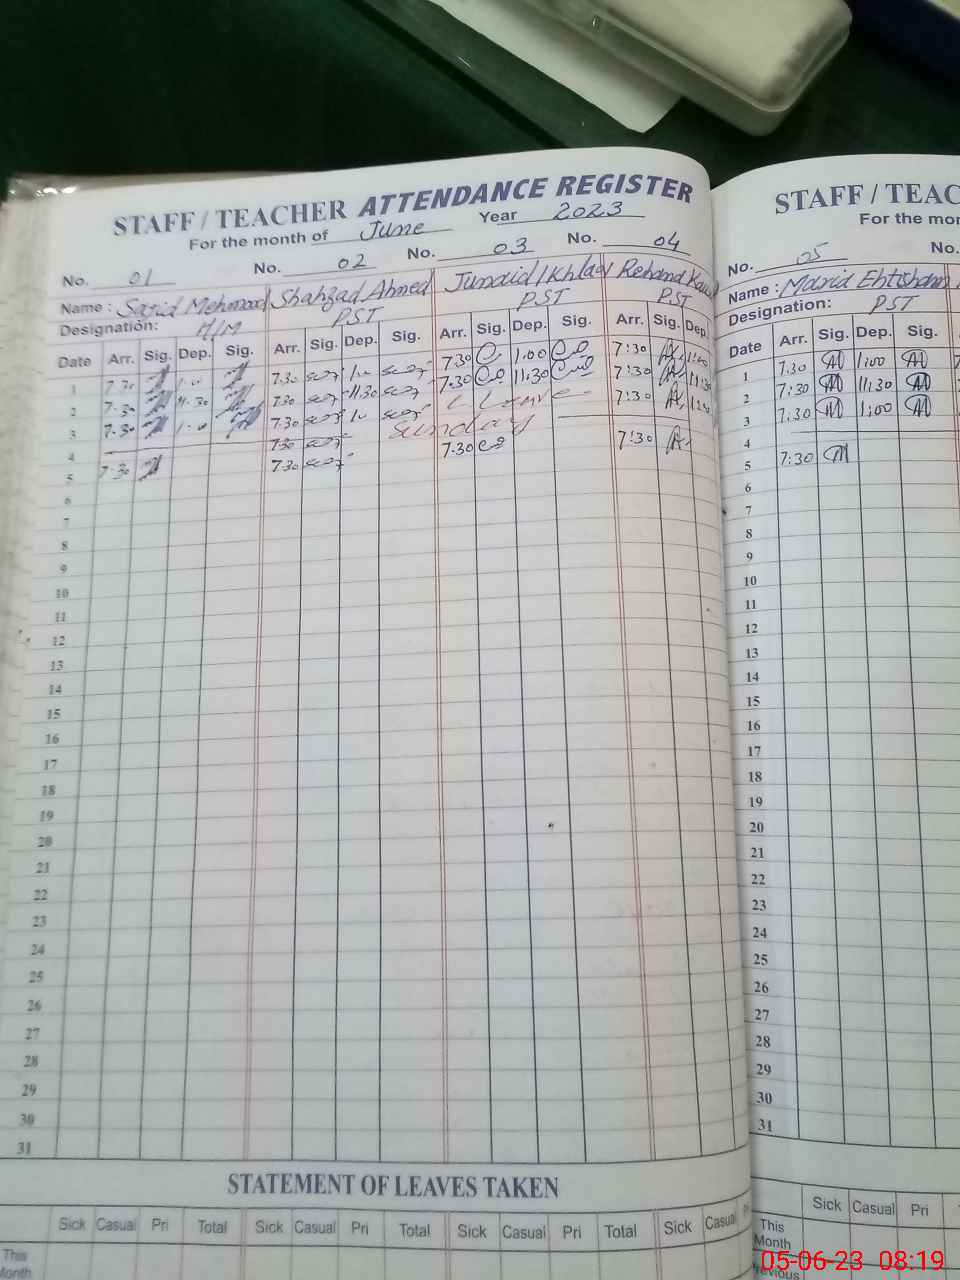 STAFF / TEACHER ATTENDANCE REGISTER
For the month of June Year 2023
No. 01 No. 02 No. 03 No. 04
Name : Sajid Mehmood Shahzad Ahmed Junaid Ikhlaq Rehana
Designation: H/M PST PST PST
Date Arr. Sig. Dep. Sig. Arr. Sig. Dep. Sig. Arr. Sig. Dep. Sig. Arr. Sig. Dep.
1 7:30 7:30 7.30 1.00 7:30
2 7:30 11.30 7:30 11:30 7.30 11.30 7:30 11:30
3 7:30 7:30 L Leave 7:30
4 Sunday
7:30
5 7:30 7:30 7.30 7:30
6
7
8
9
10
11
12
13
14
15
16
17
18
19
20
21
22
23
24
25
26
27
28
29
30
31
STATEMENT OF LEAVES TAKEN
Sick Casual Pri Total Sick Casual Pri Total Sick Casual Pri Total Sick Casual
This
Month
STAFF / TEAC
For the mon
No. 05 No.
Name : Maria Ehtisham
Designation: PST
Date Arr. Sig. Dep. Sig.
1 7:30 M 1:00 M
2 7:30 M 11:30 M
3 7:30 M 1:00 M
4
5 7:30 M
6
7
8
9
10
11
12
13
14
15
16
17
18
19
20
21
22
23
24
25
26
27
28
29
30
31
Sick Casual Pri
This
Month
Previous
05-06-23 08:19